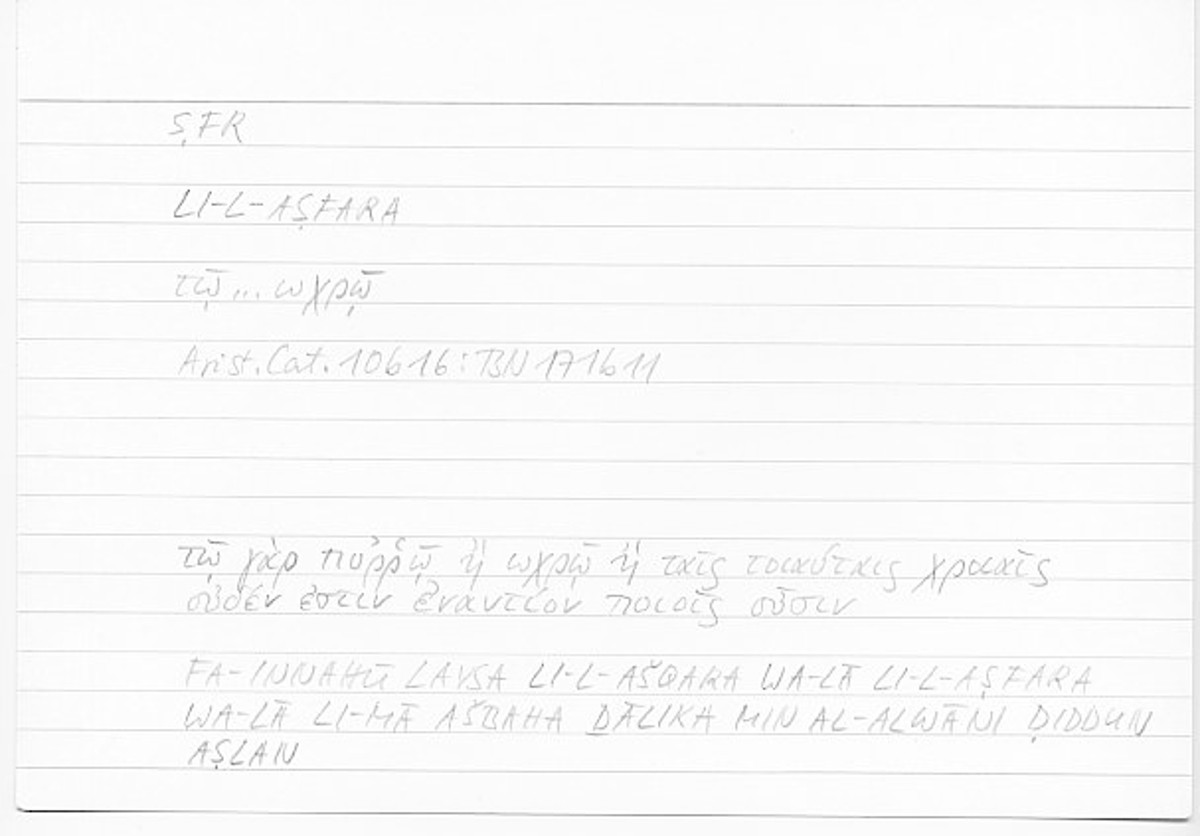 ṢFR
LI-L-AṢFARA
τῷ ... ωχρῷ
Arist. Cat. 10b16: BN 171b11
τῷ γὰρ πυῤῥῷ ἢ ωχρῷ ἢ ταῖς τοιαύταις χροιαῖς
οὐδέν ἐστιν ἐναντίον ποιοῖς οὖσιν
FA-INNAHŪ LAYSA LI-L-AŠQARA WA-LĀ LI-L-AṢFARA
WA-LĀ LI-MĀ AŠBAHA ḎĀLIKA MIN AL-ALWĀNI ḌIDDUN
AṢLAN